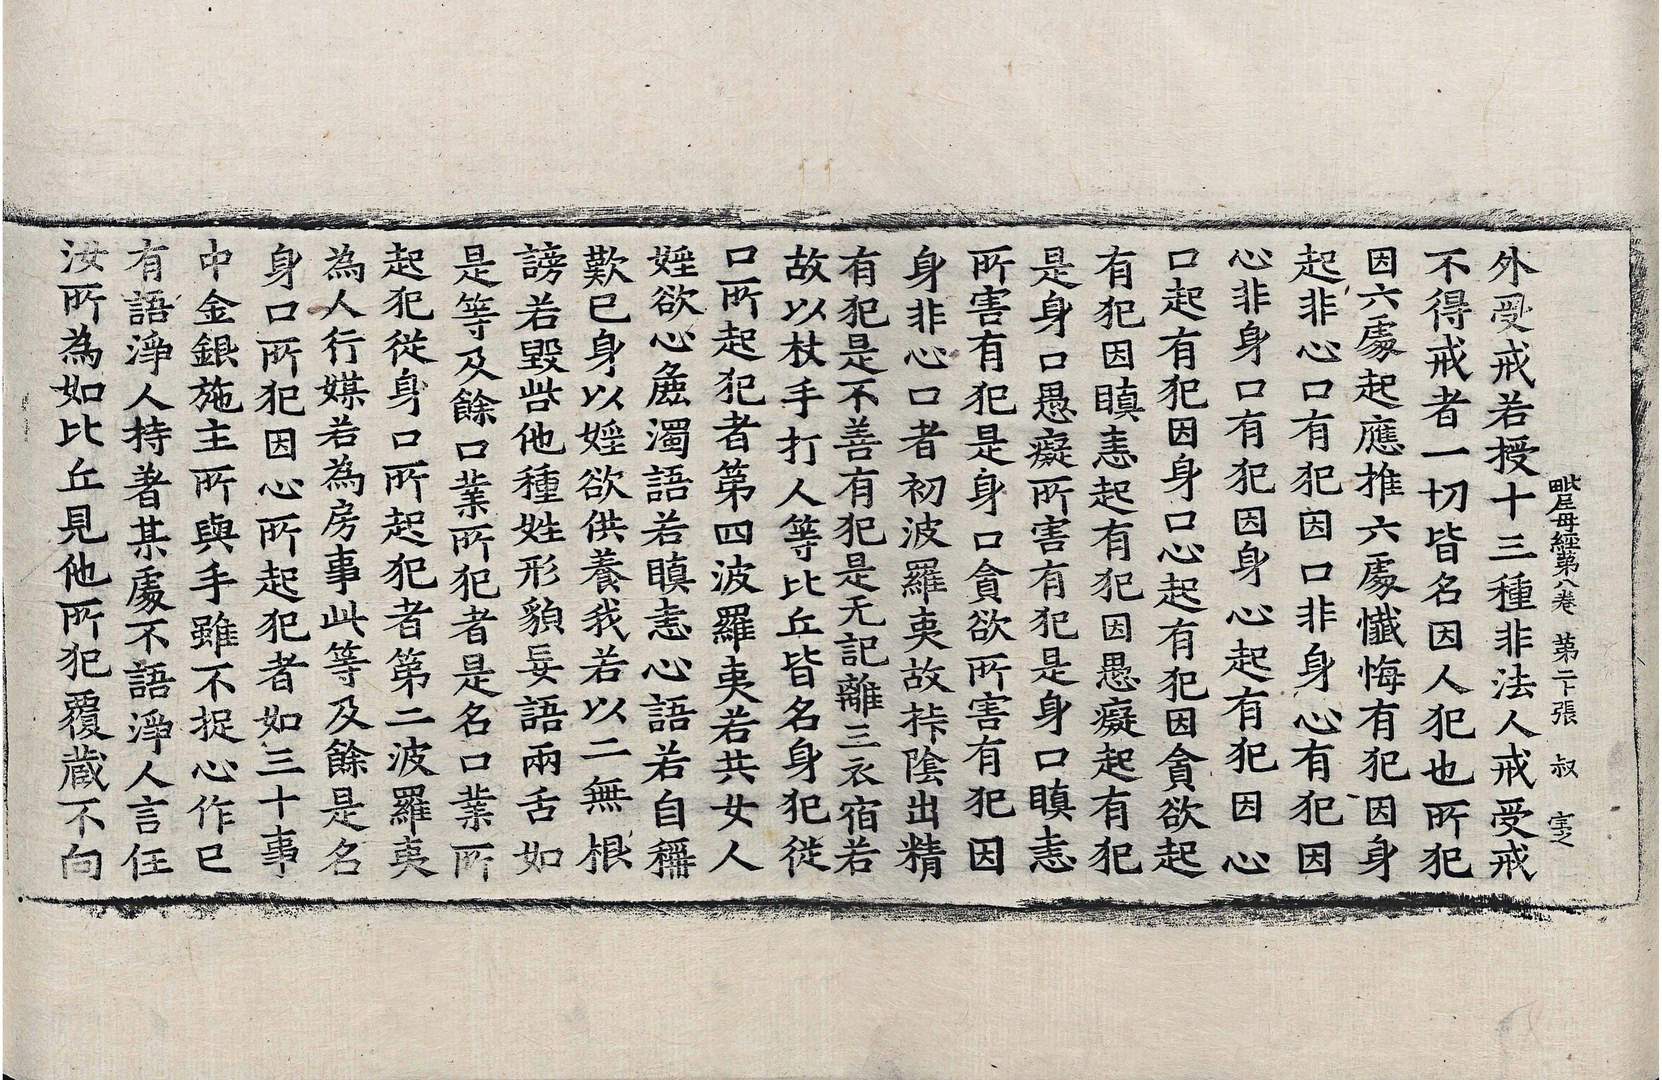 毗尼母經第八卷 第二十張 叔 㝎
外受戒若授十三種非法人戒受戒
不得戒者一切皆名因人犯也所犯
因六處起應推六處懺悔有犯因身
起非心口有犯因口非身心有犯因
心非身口有犯因身心起有犯因心
口起有犯因身口心起有犯因貪欲起
有犯因瞋恚起有犯因愚癡起有犯
是身口愚癡所害有犯是身口瞋恚
所害有犯是身口貪欲所害有犯因
身非心口者初波羅夷故㧊陰出精
有犯是不善有犯是无記離三衣宿若
故以杖手打人等比丘皆名身犯從
口所起犯者第四波羅夷若共女人
婬欲心麁濁語若瞋恚心語若自稱
歎已身以婬欲供養我若以二無根
謗若毀呰他種姓形貌妄語兩舌如
是等及餘口業所犯者是名口業所
起犯從身口所起犯者第二波羅夷
為人行媒若為房事此等及餘是名
身口所犯因心所起犯者如三十事
中金銀施主所與手雖不捉心作已
有語淨人持著某處不語淨人言任
汝所為如比丘見他所犯覆藏不向